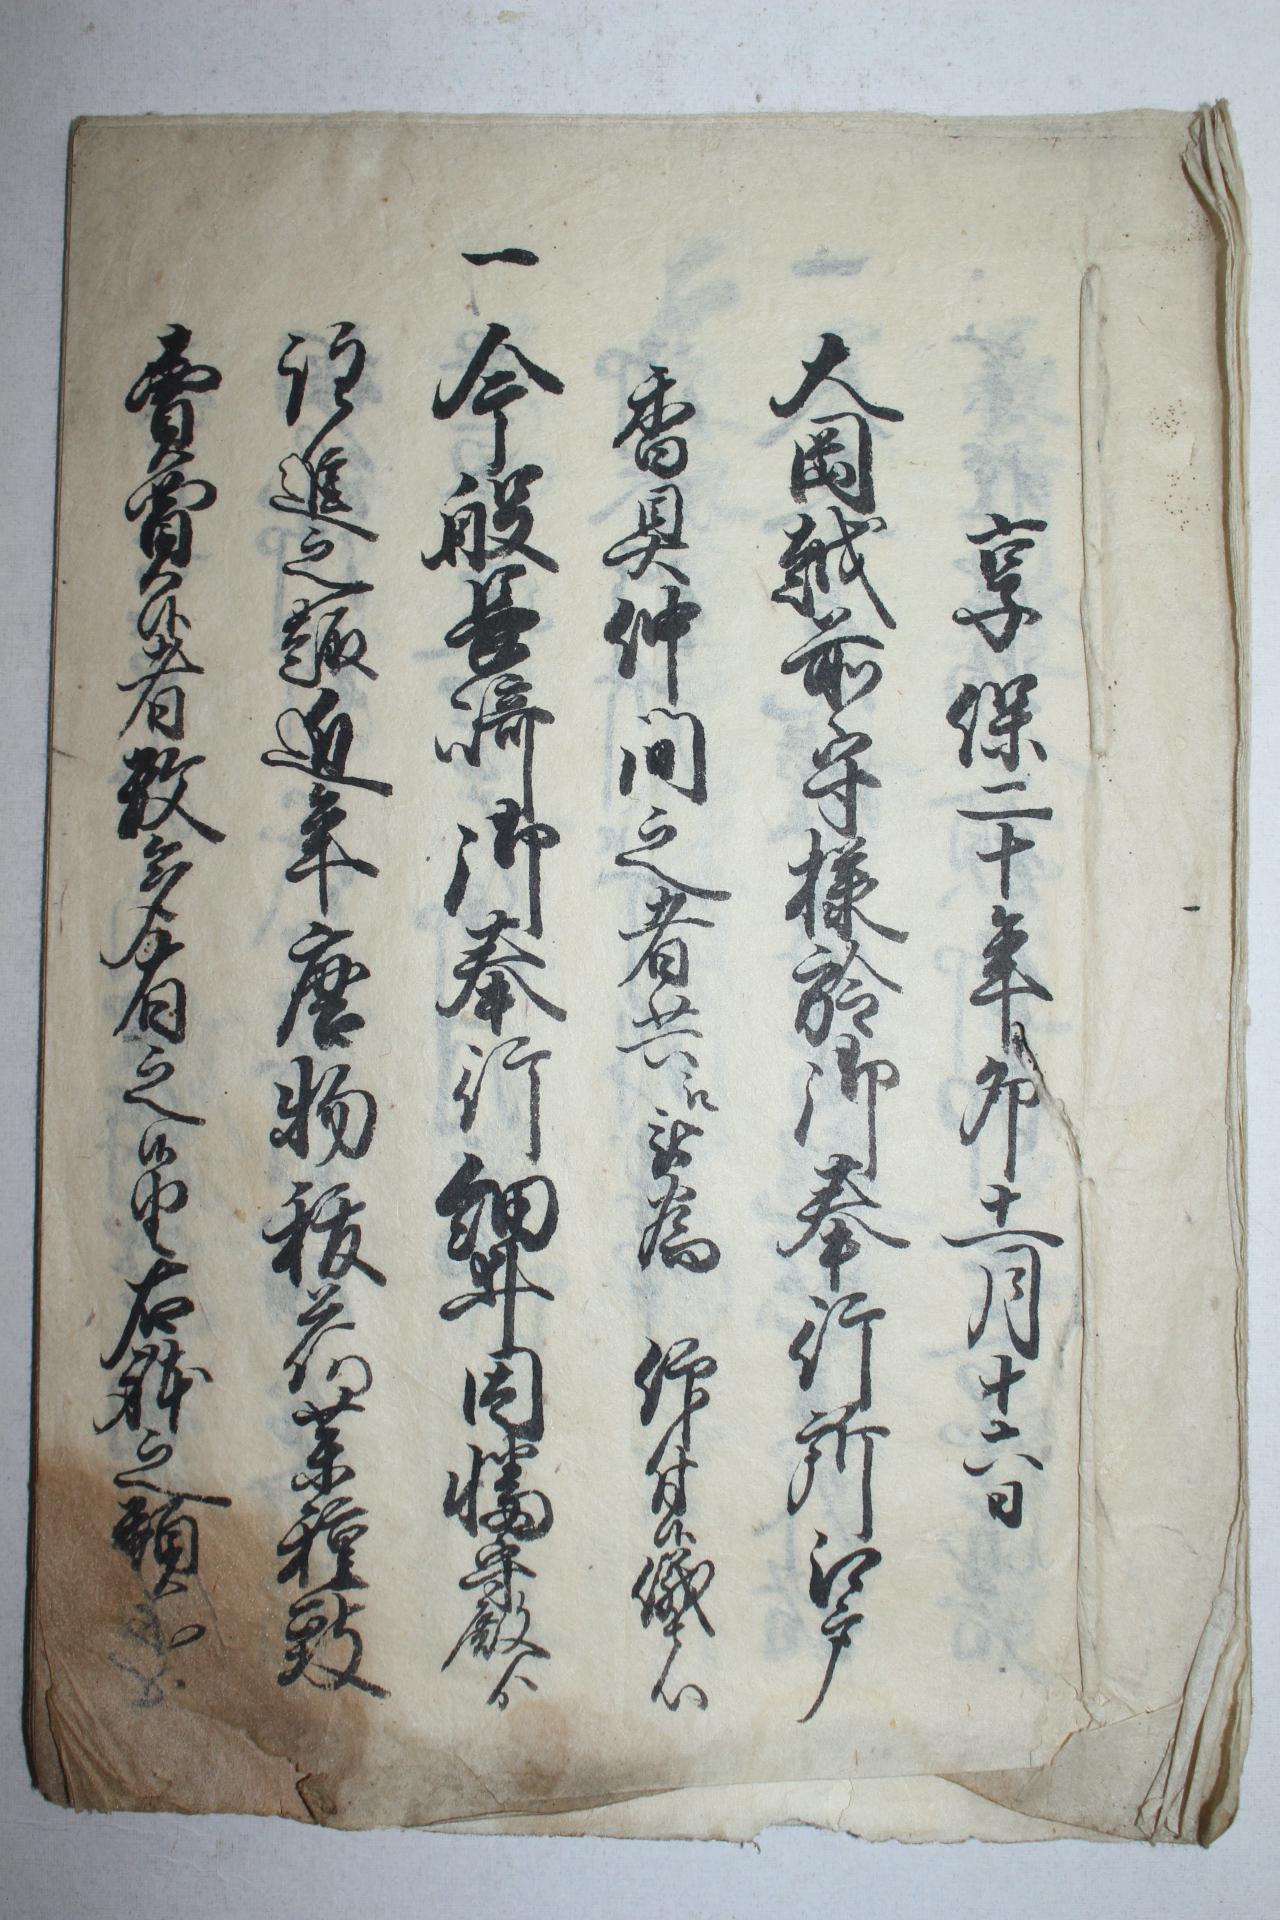 享保二十年卯十一月十六日
大岡越前守様於御奉行所江戸
香具仲間之者共被為 仰付候儀
一 今般長崎御奉行細井因幡守殿ゟ
注進之趣近年唐物抜荷薬種致
売買候者数多有之候由右躰之類